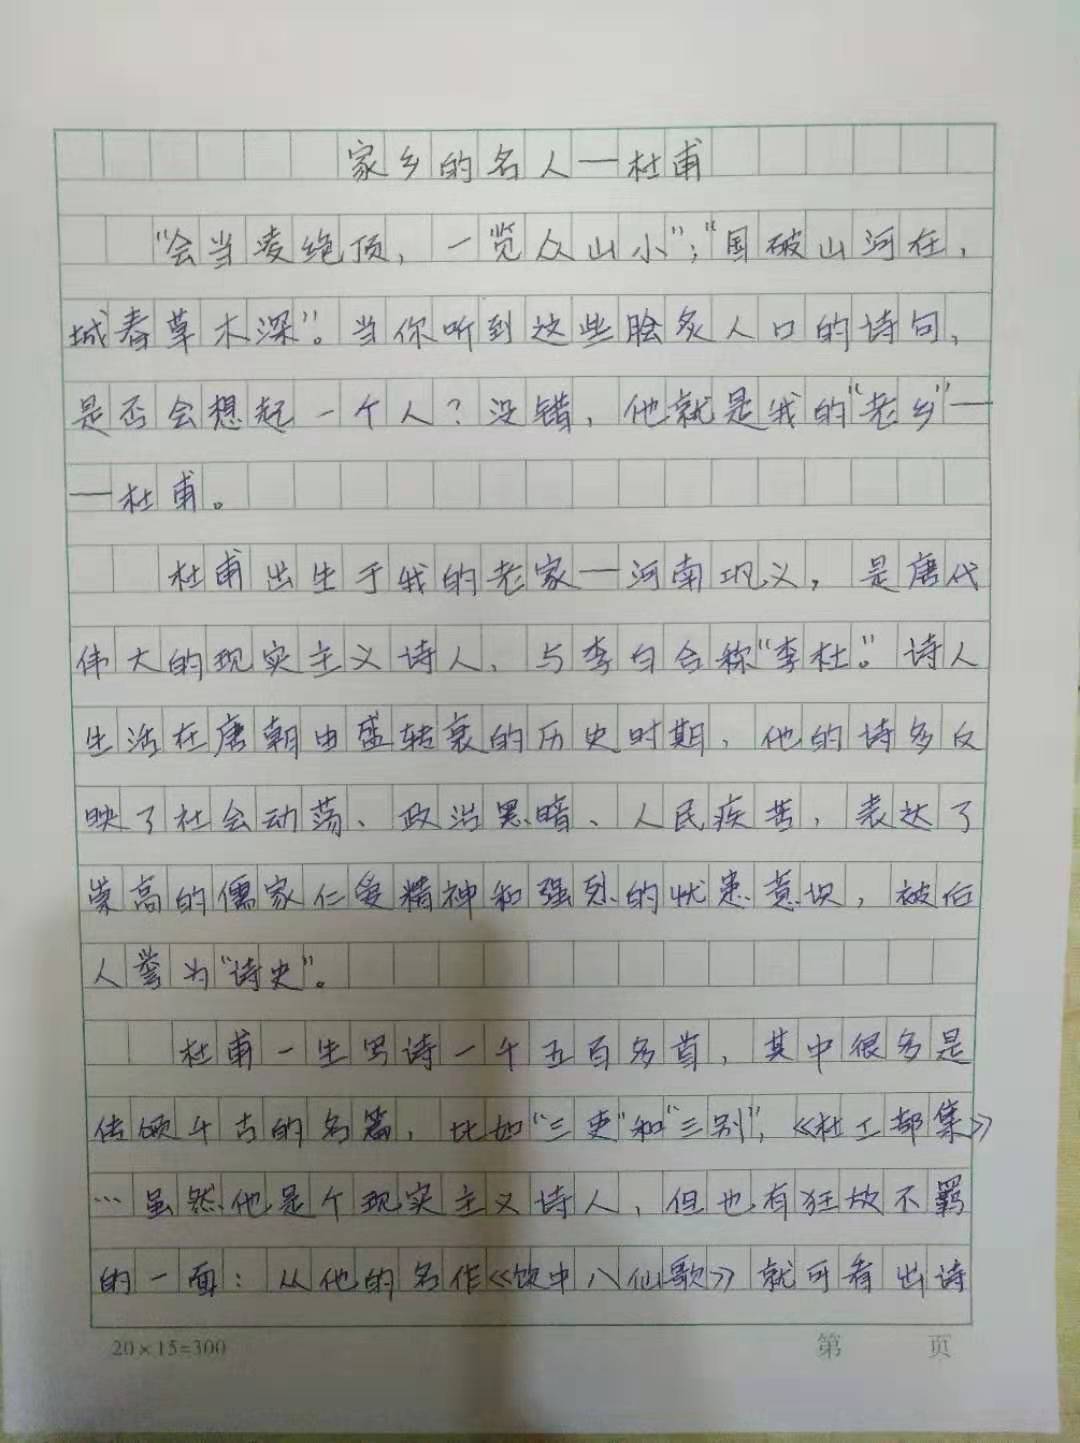 家乡的名人—杜甫
“会当凌绝顶，一览众山小”；“国破山河在，
城春草木深”。当你听到这些脍炙人口的诗句，
是否会想起一个人？没错，他就是我的“老乡”—
—杜甫。
杜甫出生于我的老家—河南巩义，是唐代
伟大的现实主义诗人，与李白合称“李杜”。诗人
生活在唐朝由盛转衰的历史时期，他的诗多反
映了社会动荡、政治黑暗、人民疾苦，表达了
崇高的儒家仁爱精神和强烈的忧患意识，被后
人誉为“诗史”。
杜甫一生写诗一千五百多首，其中很多是
传颂千古的名篇，比如“三吏”和“三别”，《杜工部集》
…虽然他是个现实主义诗人，但也有狂放不羁
的一面：从他的名作《饮中八仙歌》就可看出诗
20×15=300
第 页